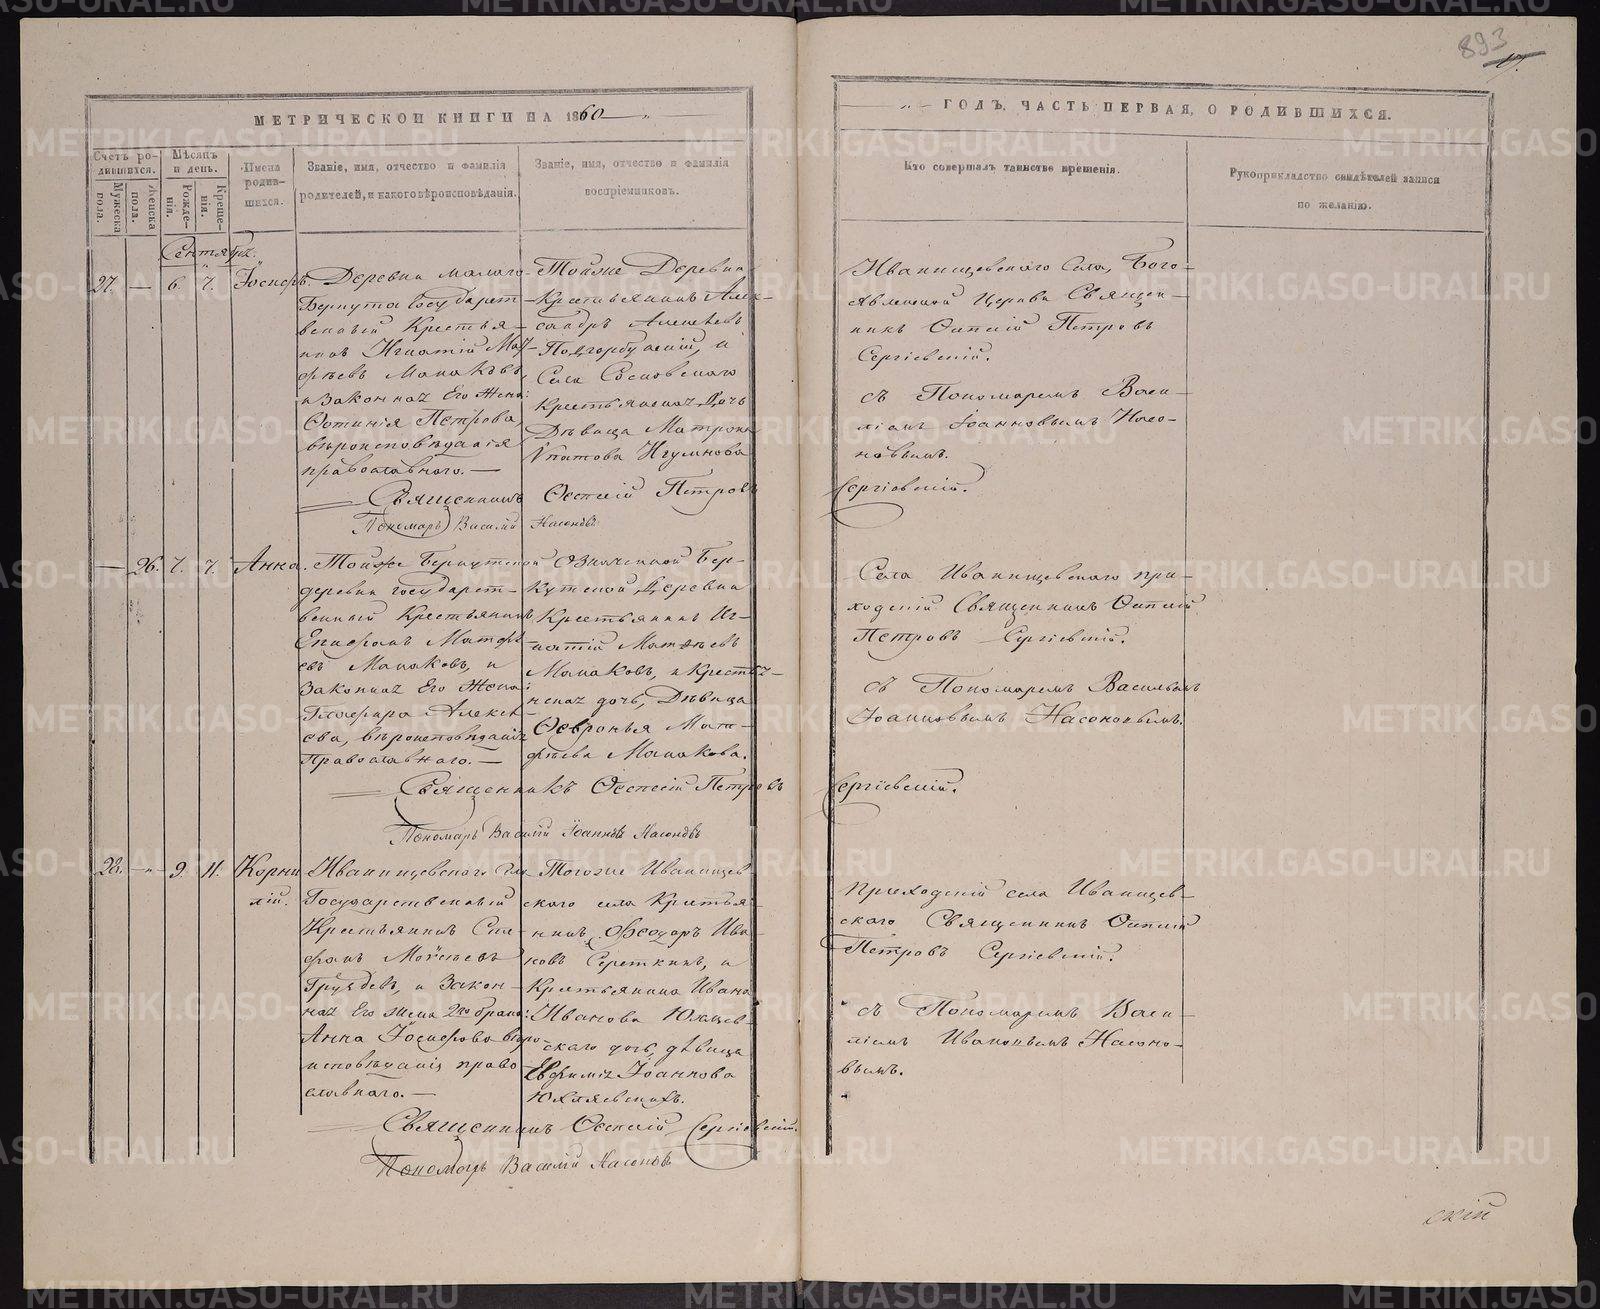 893
17.
МЕТРИЧЕСКОЙ КНИГИ НА 1860
ГОДЪ, ЧАСТЬ ПЕРВАЯ, О РОДИВШИХСЯ.
Счетъ родившихся.
Мужеска пола.
Женска пола.
Мѣсяцъ и день.
Рожденія.
Крещенія.
Имена родившихся.
Званіе, имя, отчество и фамилія родителей, и какого вѣроисповѣданія.
Званіе, имя, отчество и фамилія воспріемниковъ.
Кто совершалъ таинство крещенія.
Рукоприкладство свидѣтелей записи по желанію.
Сентябрь.
27. — 6. 7. Іосифъ.
Деревни малаго
Беркута Государст-
венный Крестья-
нинъ Игнатій Мат-
фѣевъ Манаковъ,
и законная Его жена
Фотинія Петрова
вѣроисповѣданія
православнаго. —
Тойже Деревни
Крестьянинъ Алек-
сандръ Алексѣевъ
Подгорбунскій, и
Села Сосновскаго
крестьянская Дочь
Дѣвица Матрона
Ипатова Игумнова
Иванищевскаго Села, Бого-
явленской Церкви Священ-
никъ Евсевій Петровъ
Сергіевскій.
съ Пономаремъ Васи-
ліемъ Іоанновымъ Насо-
новымъ.
Священникъ Евсевій Петровъ
Сергіевскій.
Пономарь Василій Насоновъ
— 26. 7. 7. Анна.
Тойже Беркутской
деревни государст-
венный Крестьянинъ
Епифанъ Матфѣ-
евъ Манаковъ, и
Законная Его Жена
Глафира Алексѣ-
ева, вѣроисповѣданія
Православнаго. —
Означенной Бер-
кутской Деревни
Крестьянинъ Иг-
натій Матфѣевъ
Манаковъ, и Крестья-
нская дочь, Дѣвица
Февронья Мат-
фѣева Манакова.
Села Иванищевскаго при-
ходскій Священникъ Евсевій
Петровъ Сергіевскій.
съ Пономаремъ Васильемъ
Іоанновымъ Насоновымъ.
Священникъ Евсевій Петровъ
Сергіевскій.
Пономарь Василій Іоанновъ Насоновъ
28. — 9. 11. Корни-
лій.
Иванищевскаго села
Государственный
Крестьянинъ Сте-
фанъ Моѵсеевъ
Груздевъ, и Закон-
ная Его жена 2го брака
Анна Іосифова вѣро-
исповѣданія право-
славнаго. —
Тогоже Иванищев-
скаго села Крестья-
нинъ Ѳеодоръ Ива-
новъ Сереткинъ, и
Крестьянина Ивана
Иванова Юхлаев-
скаго дочь, дѣвица
Евфимія Іоаннова
Юхлаевскихъ.
Приходскій села Иванищев-
скаго Священникъ Евсевій
Петровъ Сергіевскій.
съ Пономаремъ Васи-
ліемъ Ивановымъ Насоно-
вымъ.
Священникъ Евсевій Сергіевскій.
Пономарь Василій Насоновъ
скій
METRIKI.GASO-URAL.RU